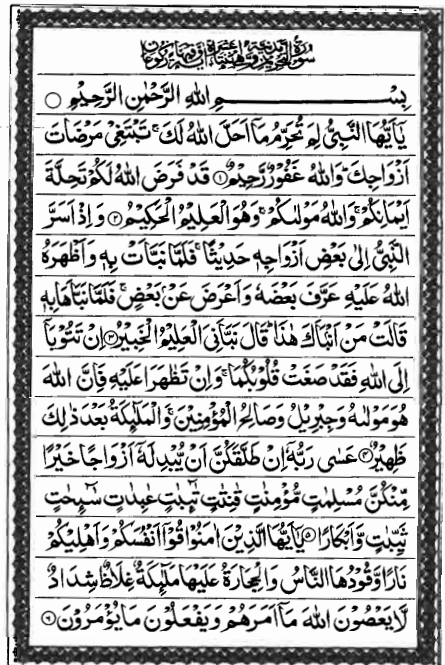 سُوْرَةُ التَّحْرِيْمِ مَدَنِيَّةٌ وَّهِيَ اثْنَتَا عَشْرَةَ اٰيَةً وَّفِيْهَا رُكُوْعَانِ
بِسْــــــمِ اللهِ الرَّحْمٰنِ الرَّحِيْمِ ○
يٰۤاَيُّهَا النَّبِيُّ لِمَ تُحَرِّمُ مَاۤ اَحَلَّ اللهُ لَكَ ۚ تَبْتَغِيْ مَرْضَاتَ
اَزْوَاجِكَ ؕ وَاللهُ غَفُوْرٌ رَّحِيْمٌ ۝۱ قَدْ فَرَضَ اللهُ لَكُمْ تَحِلَّةَ
اَيْمَانِكُمْ ۚ وَاللهُ مَوْلٰىكُمْ ۚ وَهُوَ الْعَلِيْمُ الْحَكِيْمُ ۝۲ وَاِذْ اَسَرَّ
النَّبِيُّ اِلٰى بَعْضِ اَزْوَاجِهٖ حَدِيْثًا ۚ فَلَمَّا نَبَّاَتْ بِهٖ وَاَظْهَرَهُ
اللهُ عَلَيْهِ عَرَّفَ بَعْضَهٗ وَاَعْرَضَ عَنْۢ بَعْضٍ ۚ فَلَمَّا نَبَّاَهَا بِهٖ
قَالَتْ مَنْ اَنْۢبَاَكَ هٰذَا ؕ قَالَ نَبَّاَنِيَ الْعَلِيْمُ الْخَبِيْرُ ۝۳ اِنْ تَتُوْبَاۤ
اِلَى اللهِ فَقَدْ صَغَتْ قُلُوْبُكُمَا ۚ وَاِنْ تَظٰهَرَا عَلَيْهِ فَاِنَّ اللهَ
هُوَ مَوْلٰىهُ وَجِبْرِيْلُ وَصَالِحُ الْمُؤْمِنِيْنَ ۚ وَالْمَلٰٓئِكَةُ بَعْدَ ذٰلِكَ
ظَهِيْرٌ ۝۴ عَسٰى رَبُّهٗۤ اِنْ طَلَّقَكُنَّ اَنْ يُّبْدِلَهٗۤ اَزْوَاجًا خَيْرًا
مِّنْكُنَّ مُسْلِمٰتٍ مُّؤْمِنٰتٍ قٰنِتٰتٍ تٰٓئِبٰتٍ عٰبِدٰتٍ سٰٓئِحٰتٍ
ثَيِّبٰتٍ وَّاَبْكَارًا ۝۵ يٰۤاَيُّهَا الَّذِيْنَ اٰمَنُوْا قُوْۤا اَنْفُسَكُمْ وَاَهْلِيْكُمْ
نَارًا وَّقُوْدُهَا النَّاسُ وَالْحِجَارَةُ عَلَيْهَا مَلٰٓئِكَةٌ غِلَاظٌ شِدَادٌ
لَّا يَعْصُوْنَ اللهَ مَاۤ اَمَرَهُمْ وَيَفْعَلُوْنَ مَا يُؤْمَرُوْنَ ۝۶